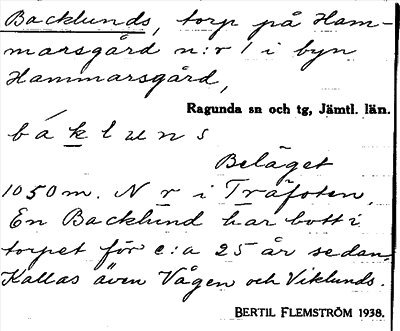 Backlunds, torp på Ham-
marsgård n:r 1 i byn
Hammarsgård,
Ragunda sn och tg, Jämtl. län.
bákluens
Beläget
1050 m. N r i Träfoten.
En Backlund har bott i
torpet för c:a 25 år sedan.
Kallas även Vågen och Viklunds.
BERTIL FLEMSTRÖM 1938.